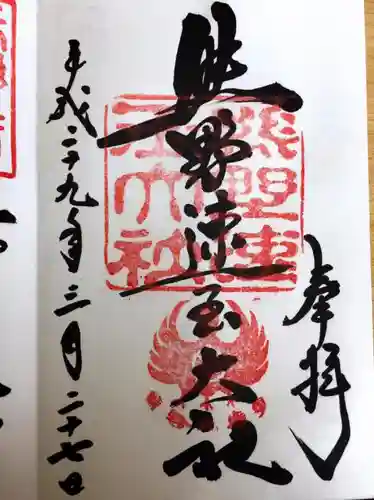 奉拝
熊野速玉大社
平成二十九年三月二十七日
熊野速
玉大社